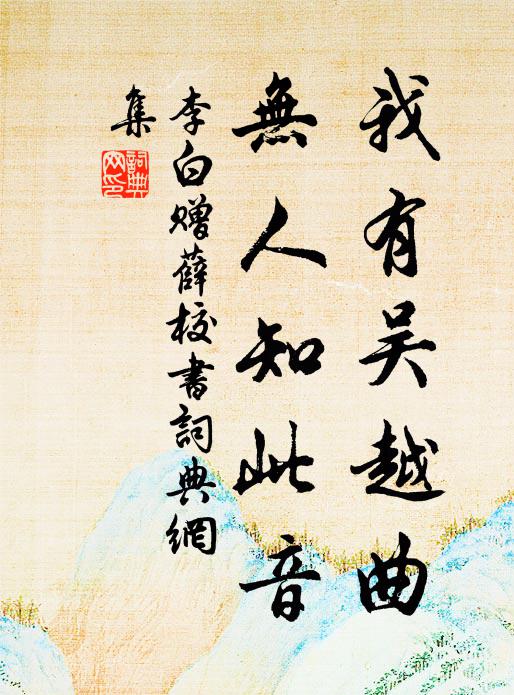 我有吴越曲
無人知此音
李白赠薛校書詞典網
集
詞典網印